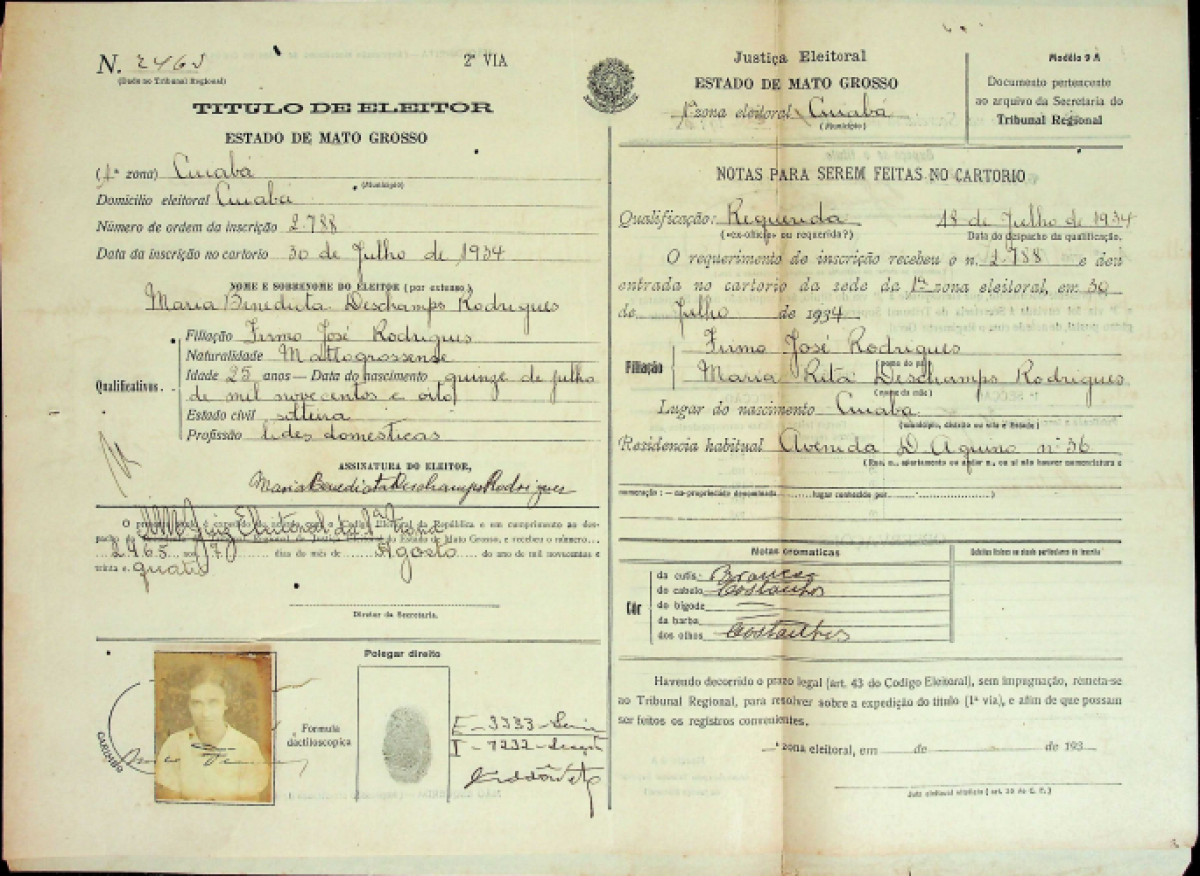 N. 2465
2ª VIA
(Dado no Tribunal Regional)
TITULO DE ELEITOR
ESTADO DE MATO GROSSO
(1ª zona) Cuiabá
(Municipio)
Domicilio eleitoral Cuiabá
Número de ordem da inscrição 2.788
Data da inscrição no cartorio 30 de Julho de 1934
NOME E SOBRENOME DO ELEITOR (por extenso)
Maria Benedicta Deschamps Rodrigues
Qualificativos.
Filiação Firmo José Rodrigues
Naturalidade Mattogrossense
Idade 25 anos — Data do nascimento quinze de julho
de mil novecentos e oito
Estado civil solteira
Profissão lides domesticas
ASSINATURA DO ELEITOR,
Maria Benedicta Deschamps Rodrigues
O presente titulo é expedido de acordo com o Codigo Eleitoral da República e em cumprimento ao des-
MM Juiz Eleitoral da 1ª Zona
pacho do Regional de Justiça do Estado de Mato Grosso, e recebeu o número
2465 aos 17 dias do mês de Agosto do ano de mil novecentos e
trinta e quatro
Director da Secretaria.
CARIMBO
Formula
dactiloscopica
Polegar direito
E-3333-Serie
I-7232-Secção
Justiça Eleitoral
ESTADO DE MATO GROSSO
1ª zona eleitoral Cuiabá
(Municipio)
Modêlo 9 A
Documento pertencente
ao arquivo da Secretaria do
Tribunal Regional
NOTAS PARA SEREM FEITAS NO CARTORIO
Qualificação: Requerida 18 de Julho de 1934
(«ex-oficio» ou requerida?) Data do despacho da qualificação.
O requerimento de inscrição recebeu o n. 2.788 e deu
entrada no cartorio da séde da 1ª zona eleitoral, em 30
de Julho de 1934
Filiação
Firmo José Rodrigues
(nome do pai)
Maria Rita Deschamps Rodrigues
(nome da mãe)
Lugar do nascimento Cuiabá
(municipio, distrito ou vila e Estado)
Residencia habitual Avenida D Aquino nº 36
(Rua, n., apartamento ou andar n., ou si não houver nomenclatura e
numeração: — na propriedade denominada lugar conhecido por )
Notas cromaticas
Côr
da cutis: Branca
do cabelo Castanhos
do bigode —
da barba —
dos olhos Castanhos
Havendo decorrido o prazo legal (art. 43 do Codigo Eleitoral), sem impugnação, remeta-se
ao Tribunal Regional, para resolver sobre a expedição do titulo (1ª via), e afim de que possam
ser feitos os registros convenientes.
—ª zona eleitoral, em de de 193
Juiz eleitoral vitalicio (art. 30 do C. E.)